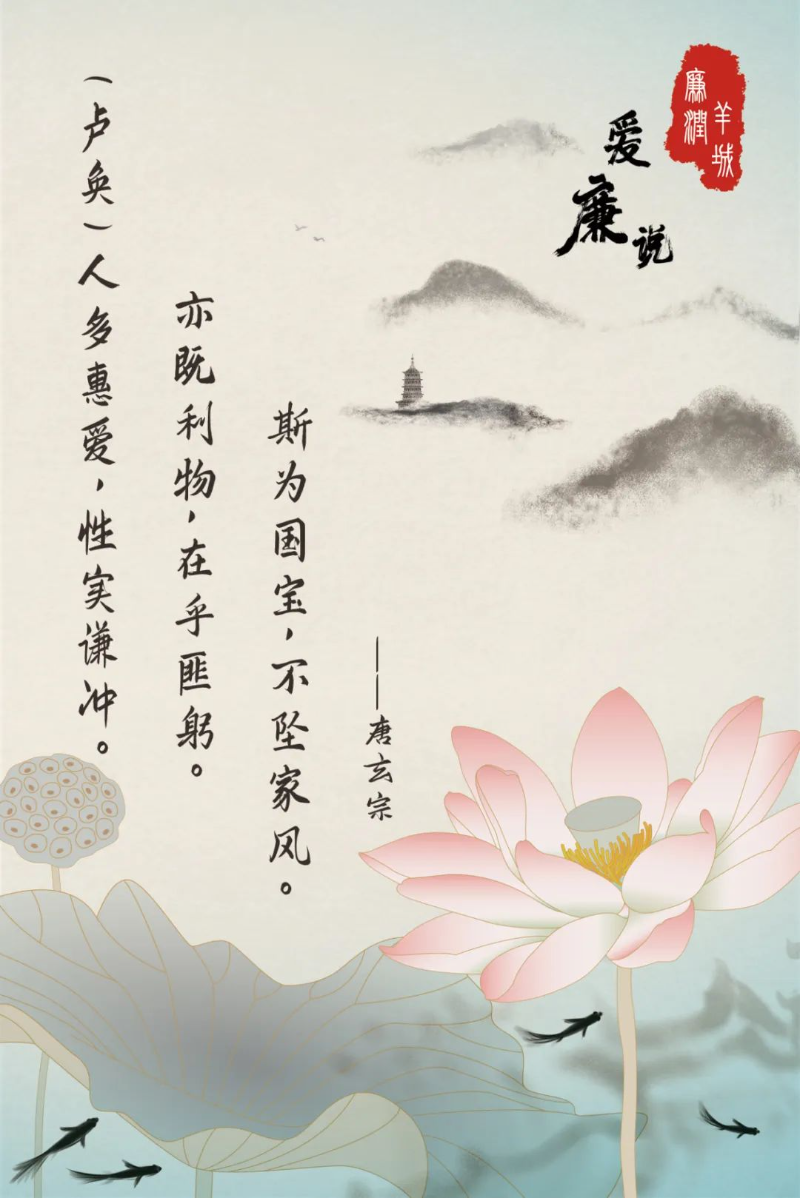 廉潤
羊城
爱廉说
(卢奂)人多惠爱,性实谦冲。
亦既利物,在乎匪躬。
斯为国宝,不坠家风。
——唐玄宗